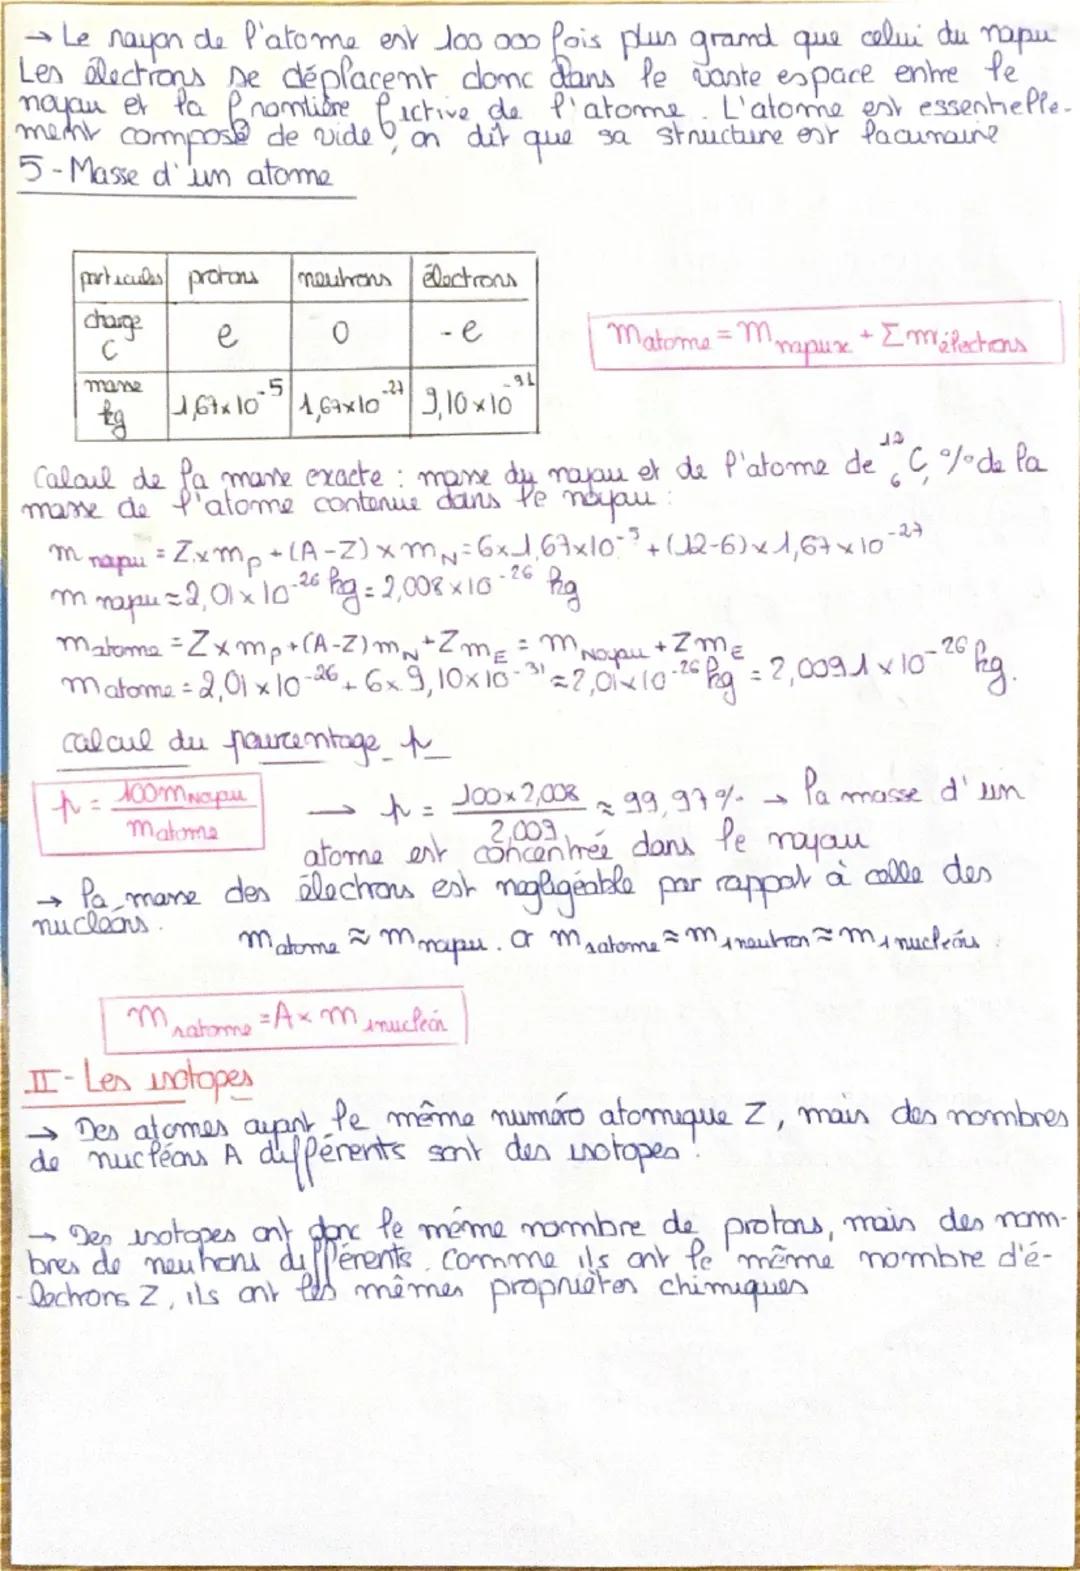 → Le rayon de l'atome est 100 000 fois plus grand que celui du noyau
Les électrons se déplacent donc dans le vaste espace entre le
noyau et la frontière fictive de l'atome. L'atome est essentielle-
ment composé de vide, on dit que sa structure est lacunaire
5 - Masse d'un atome
particules protons neutrons électrons
charge C e 0 - e
masse kg 1,67×10⁻⁵ 1,67×10⁻²⁷ 9,10×10⁻³¹
m atome = m noyaux + Σ m électrons
Calcul de la masse exacte : masse du noyau et de l'atome de ¹²₆C, % de la
masse de l'atome contenue dans le noyau :
m noyau = Z×mp + (A-Z)×mN = 6×1,67×10⁻³ + (12-6)×1,67×10⁻²⁷
m noyau ≈ 2,01×10⁻²⁶ kg = 2,008×10⁻²⁶ kg
m atome = Z×mp + (A-Z) mN + ZmE = m Noyau + ZmE
m atome = 2,01×10⁻²⁶ + 6×9,10×10⁻³¹ ≈ 2,01×10⁻²⁶ kg = 2,0091×10⁻²⁶ kg.
calcul du pourcentage p
p = 100m Noyau / m atome → p = 100×2,008 / 2,009 ≈ 99,97% → la masse d'un
atome est concentrée dans le noyau
→ la masse des électrons est négligéable par rapport à celle des
nucléons.
m atome ≈ m noyau. Or m 1atome ≈ m 1neutron ≈ m 1nucléons
m 1atome = A × m 1nucléon
II - Les isotopes
→ Des atomes ayant le même numéro atomique Z, mais des nombres
de nucléons A différents sont des isotopes.
→ Des isotopes ont donc le même nombre de protons, mais des nom-
bres de neutrons différents. Comme ils ont le même nombre d'é-
lectrons Z, ils ont les mêmes propriétés chimiques